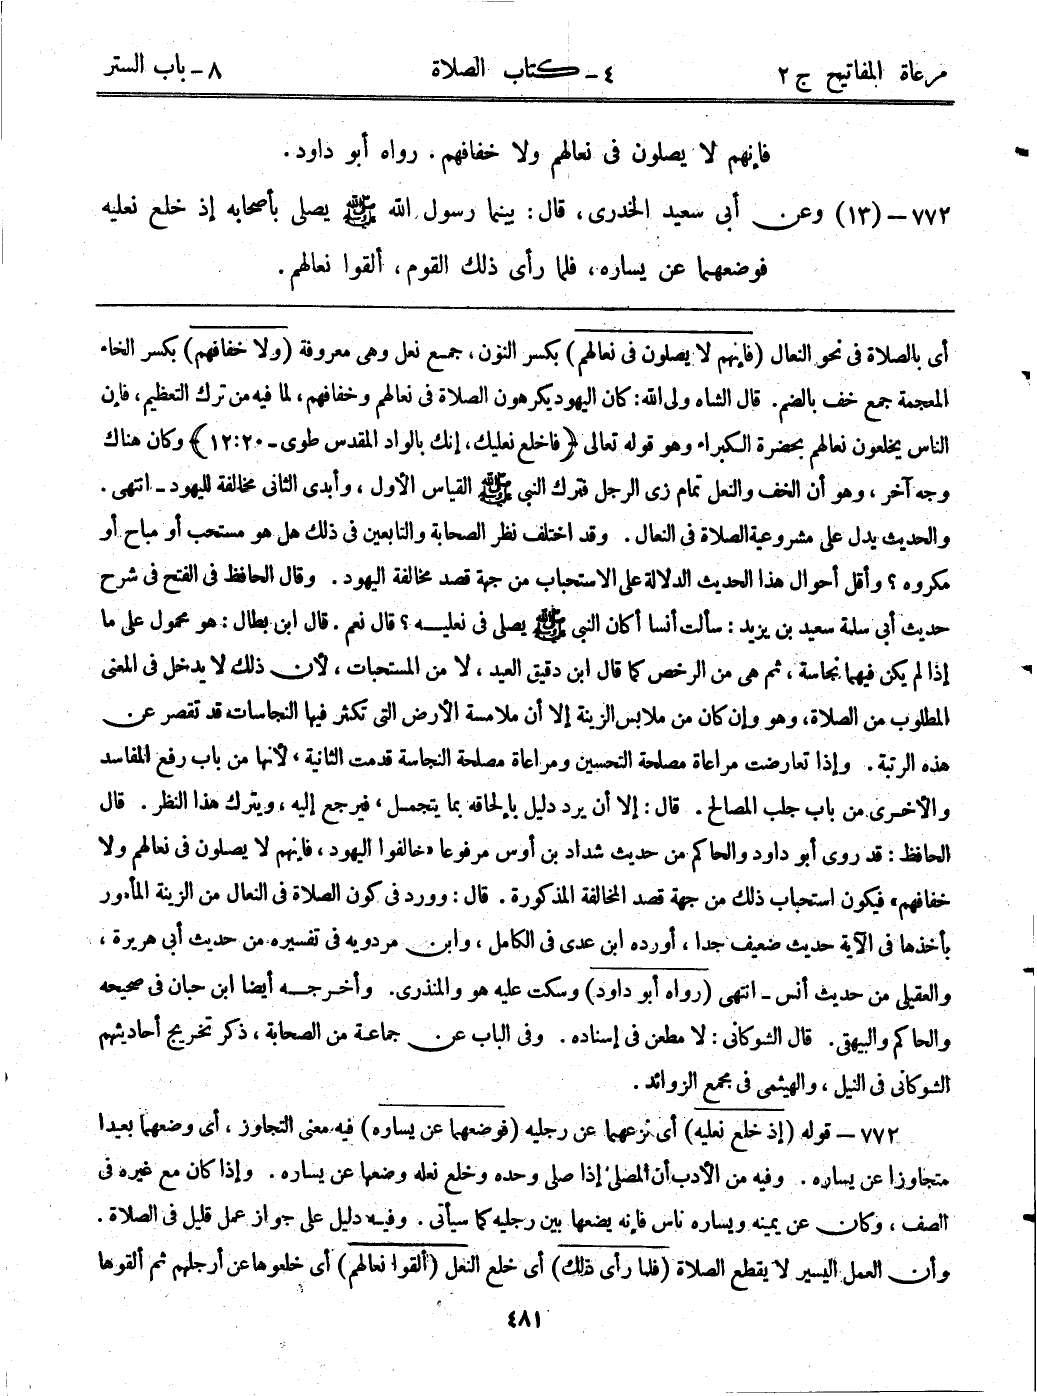 مرعاة المفاتيح ج ٢ ٤ - كتاب الصلاة ٨ - باب الستر
فإنهم لا يصلون فى نعالهم ولا خفافهم . رواه أبو داود .
٧٧٢ - (١٣) وعن أبى سعيد الخدرى ، قال : بينما رسول الله ﷺ يصلى بأصحابه إذ خلع نعليه
فوضعهما عن يساره ، فلما رأى ذلك القوم ، ألقوا نعالهم .
أى بالصلاة فى نحو النعال (فإنهم لا يصلون فى نعالهم) بكسر النون ، جمع نعل وهى معروفة (ولا خفافهم) بكسر الخاء
المعجمة جمع خف بالضم . قال الشاه ولى الله : كان اليهود يكرهون الصلاة فى نعالهم وخفافهم ، لما فيه من ترك التعظيم ، فإن
الناس يخلعون نعالهم بحضرة الكبراء وهو قوله تعالى ﴿ فاخلع نعليك ، إنك بالواد المقدس طوى - ١٢:٢٠ ﴾ وكان هناك
وجه آخر ، وهو أن الخف والنعل تمام زى الرجل فترك النبى ﷺ القياس الأول ، وأبدى الثانى مخالفة لليهود - انتهى .
والحديث يدل على مشروعية الصلاة فى النعال . وقد اختلف نظر الصحابة والتابعين فى ذلك هل هو مستحب أو مباح أو
مكروه ؟ وأقل أحوال هذا الحديث الدلالة على الاستحباب من جهة قصد مخالفة اليهود . وقال الحافظ فى الفتح فى شرح
حديث أبى سلمة سعيد بن يزيد : سألت أنسا أكان النبى ﷺ يصلى فى نعليه ؟ قال نعم . قال ابن بطال : هو محمول على ما
إذا لم يكن فيهما نجاسة ، ثم هى من الرخص كما قال ابن دقيق العيد ، لا من المستحبات ، لأن ذلك لا يدخل فى المعنى
المطلوب من الصلاة ، وهو وإن كان من ملابس الزينة إلا أن ملامسة الأرض التى تكثر فيها النجاسات قد تقصر عن
هذه الرتبة . وإذا تعارضت مراعاة مصلحة التحسين ومراعاة مصلحة النجاسة قدمت الثانية ، لأنها من باب رفع المفاسد
والأخرى من باب جلب المصالح . قال : إلا أن يرد دليل بإلحاقه بما يتجمل ، فيرجع إليه ، ويترك هذا النظر . قال
الحافظ : قد روى أبو داود والحاكم من حديث شداد بن أوس مرفوعا «خالفوا اليهود ، فإنهم لا يصلون فى نعالهم ولا
خفافهم» فيكون استحباب ذلك من جهة قصد المخالفة المذكورة . قال : وورد فى كون الصلاة فى النعال من الزينة المأمور
بأخذها فى الآية حديث ضعيف جدا ، أورده ابن عدى فى الكامل ، وابن مردويه فى تفسيره من حديث أبى هريرة ،
والعقيلى من حديث أنس - انتهى (رواه أبو داود) وسكت عليه هو والمنذرى . وأخرجه أيضا ابن حبان فى صحيحه
والحاكم والبيهقى . قال الشوكانى : لا مطعن فى إسناده . وفى الباب عن جماعة من الصحابة ، ذكر تخريج أحاديثهم
الشوكانى فى النيل ، والهيثمى فى مجمع الزوائد .
٧٧٢ - قوله (إذ خلع نعليه) أى نزعهما عن رجليه (فوضعهما عن يساره) فيه معنى التجاوز ، أى وضعهما بعيدا
متجاوزا عن يساره . وفيه من الأدب أن المصلى إذا صلى وحده وخلع نعله وضعها عن يساره . وإذا كان مع غيره فى
الصف ، وكان عن يمينه ويساره ناس فإنه يضعها بين رجليه كما سيأتى . وفيه دليل على جواز عمل قليل فى الصلاة .
وأن العمل اليسير لا يقطع الصلاة (فلما رأى ذلك) أى خلع النعل (ألقوا نعالهم) أى خلعوها عن أرجلهم ثم ألقوها
٤٨١